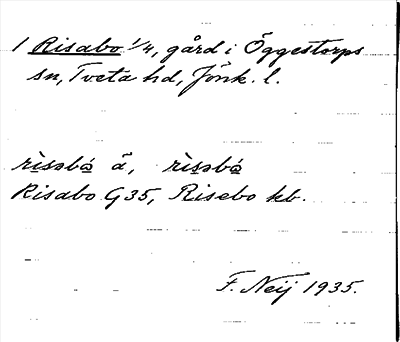 1 Risabo 1/4, gård i Öggestorps
sn, Tveta hd, Jönk. l.
rìsəbó̠ ä, rìsəbó̠
Risabo G35, Risebo kb.
F. Neij 1935.